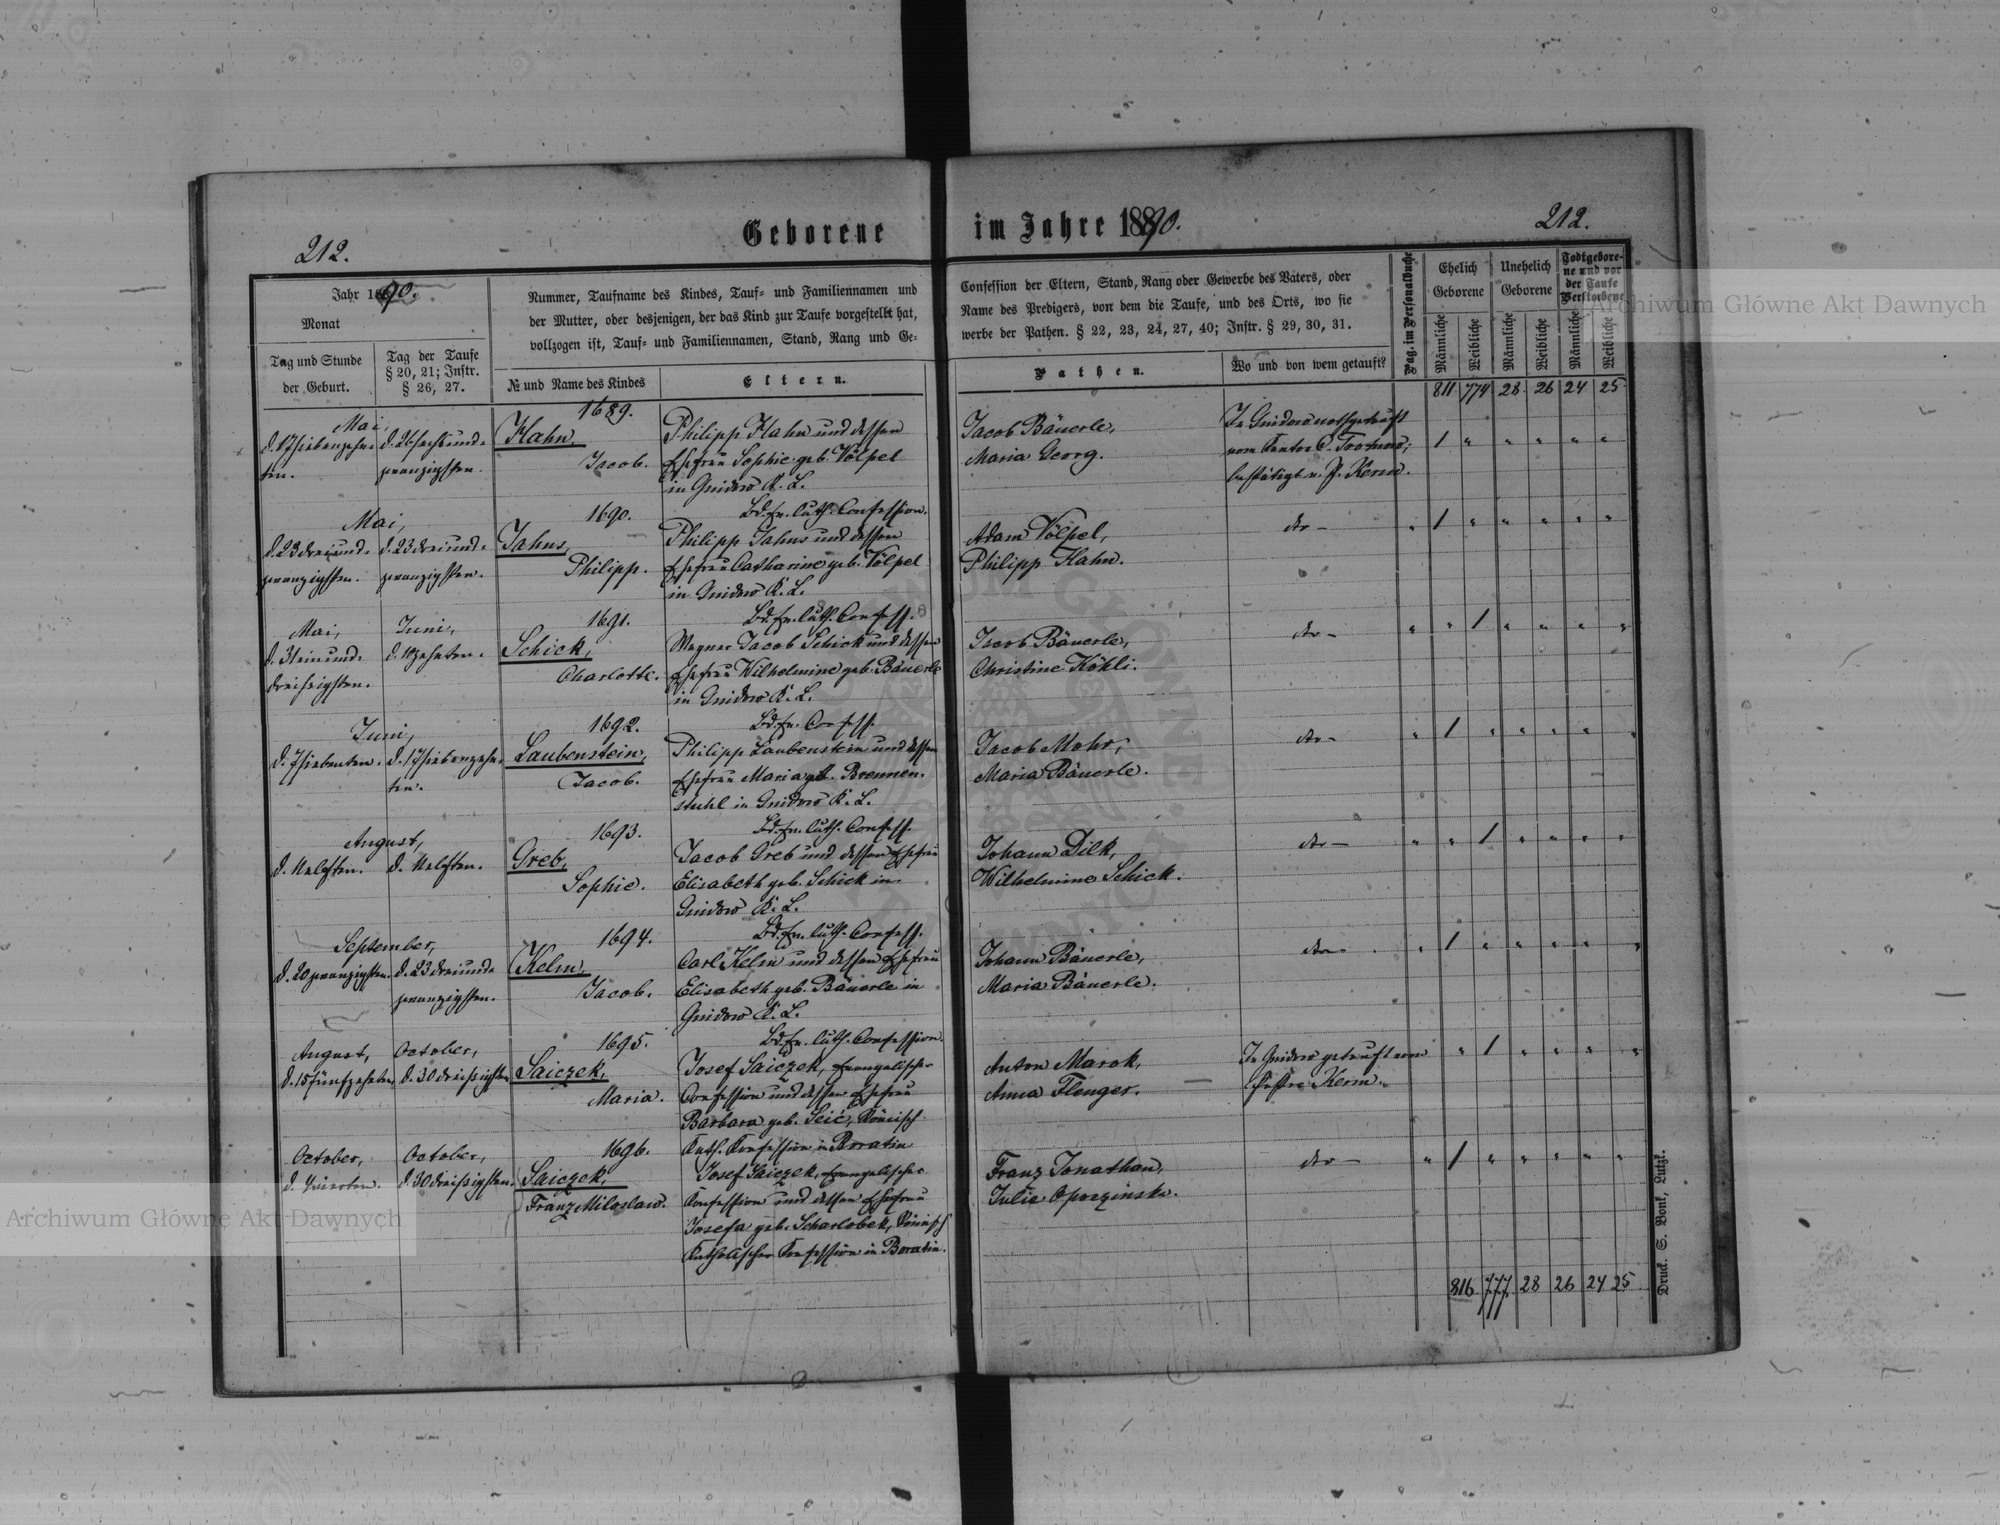 Geborene im Jahre 1890.
212.
212.
Jahr 1890.
Monat
Tag und Stunde
der Geburt.
Tag der Taufe
§ 20, 21; Instr.
§ 26, 27.
Nummer, Taufname des Kindes, Tauf- und Familiennamen und
der Mutter, oder desjenigen, der das Kind zur Taufe vorgestellt hat,
vollzogen ist, Tauf- und Familiennamen, Stand, Rang und Ge-
№ und Name des Kindes
Eltern.
Confession der Eltern, Stand, Rang oder Gewerbe des Vaters, oder
Name des Predigers, von dem die Taufe, und des Orts, wo sie
werbe der Pathen. § 22, 23, 24, 27, 40; Instr. § 29, 30, 31.
Pathen.
Wo und von wem getauft?
Pag. im Personalbuche
Ehelich
Geborene
Unehelich
Geborene
Todtgebore-
ne und vor
der Taufe
Verstorbene
Männliche
Weibliche
Männliche
Weibliche
Männliche
Weibliche
811 774 28 26 24 25
Mai,
d. 17 siebenzehn-
ten.
d. 26 sechsund-
zwanzigsten.
1689.
Hahn
Jacob.
Philipp Hahn und dessen
Ehefrau Sophie geb. Völpel
in Gnidow K. L.
Bd. Ev. luth. Confession.
Jacob Bäuerle,
Maria Georg.
In Gnidow nothgetauft
bestätigt v. P. Kerm.
Mai,
d. 23 dreiund-
zwanzigsten.
d. 23 dreiund-
zwanzigsten.
1690.
Jahns,
Philipp.
Philipp Jahns und dessen
Ehefrau Catharine geb. Völpel
in Gnidow K. L.
Bd. Ev. luth. Confess.
Adam Völpel,
Philipp Hahn.
dto –
Mai,
d. 31 einund-
dreissigsten.
Juni,
d. 10 zehnten.
1691.
Schick,
Charlotte.
Wagner Jacob Schick und dessen
Ehefrau Wilhelmine geb. Bäuerle
in Gnidow K. L.
Bd. Ev. Confess.
Jacob Bäuerle,
Christine Kökli.
dto –
Juni,
d. 7 siebenten.
d. 17 siebenzehn-
ten.
1692.
Laubenstein,
Jacob.
Philipp Laubenstein und dessen
Ehefrau Maria geb. Brennen-
stuhl in Gnidow K. L.
Bd. Ev. luth. Confess.
Jacob Mohr,
Maria Bäuerle.
dto –
August,
d. 11 elften.
d. 11 elften.
1693.
Greb,
Sophie.
Jacob Greb und dessen Ehefrau
Elisabeth geb. Schick in
Gnidow K. L.
Bd. Ev. luth. Confess.
Johann Dilk,
Wilhelmine Schick.
dto –
September,
d. 20 zwanzigsten.
d. 23 dreiund-
zwanzigsten.
1694.
Kelm,
Jacob.
Carl Kelm und dessen Ehefrau
Elisabeth geb. Bäuerle in
Gnidow K. L.
Bd. Ev. luth. Confession.
Johann Bäuerle,
Maria Bäuerle.
dto –
August,
d. 15 fünfzehnten
October,
d. 30 dreissigsten
1695.
Saiczek,
Maria.
Josef Saiczek, evangelischer
Confession und dessen Ehefrau
Barbara geb. Seić, Römisch
Kath. Confession in Boratin
Anton Marok,
Anna Flenger.
In Gnidow getauft vom
Pastor Kerm.
October,
d. 4 vierten.
October,
d. 30 dreissigsten.
1696.
Saiczek,
Franz Miloslaw.
Josef Saiczek, evangelischer
Confession und dessen Ehefrau
Josefa geb. Scharlobek, Römisch
Katholischer Confession in Boratin.
Franz Jonathan,
Julie
dto –
816. 777. 28 26 24 25
Druck. S. Bonk, Lutzk.
Archiwum Główne Akt Dawnych
Archiwum Główne Akt Dawnych